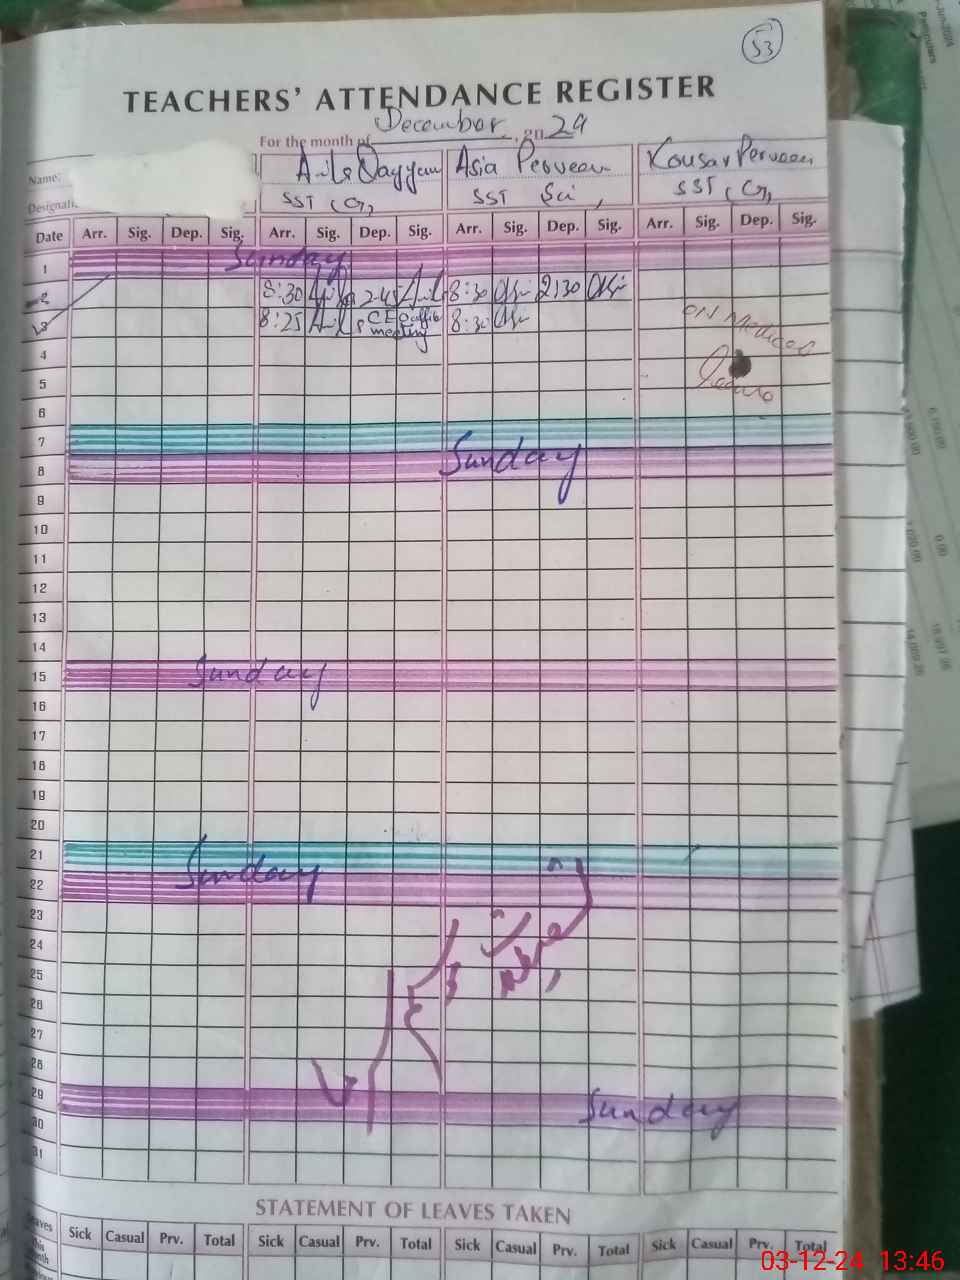 53
TEACHERS' ATTENDANCE REGISTER
For the month of December 2024
Name: Anila Qayyum Asia Perveen Kousar Perveen
SST (G) SST Sci SST (G)
Date Arr. Sig. Dep. Sig. Arr. Sig. Dep. Sig. Arr. Sig. Dep. Sig. Arr. Sig. Dep. Sig.
1 Sunday
2 8:30 2:45 8:30 2:30
3 8:25 CEO office meeting 8:30
ON Medical
leave
4
5
6
7
8 Sunday
9
10
11
12
13
14
15 Sunday
16
17
18
19
20
21
22 Sunday
23
24
25
26
27
28
29 Sunday
30
31
STATEMENT OF LEAVES TAKEN
Sick Casual Prv. Total Sick Casual Prv. Total Sick Casual Prv. Total Sick Casual Prv. Total
03-12-24 13:46